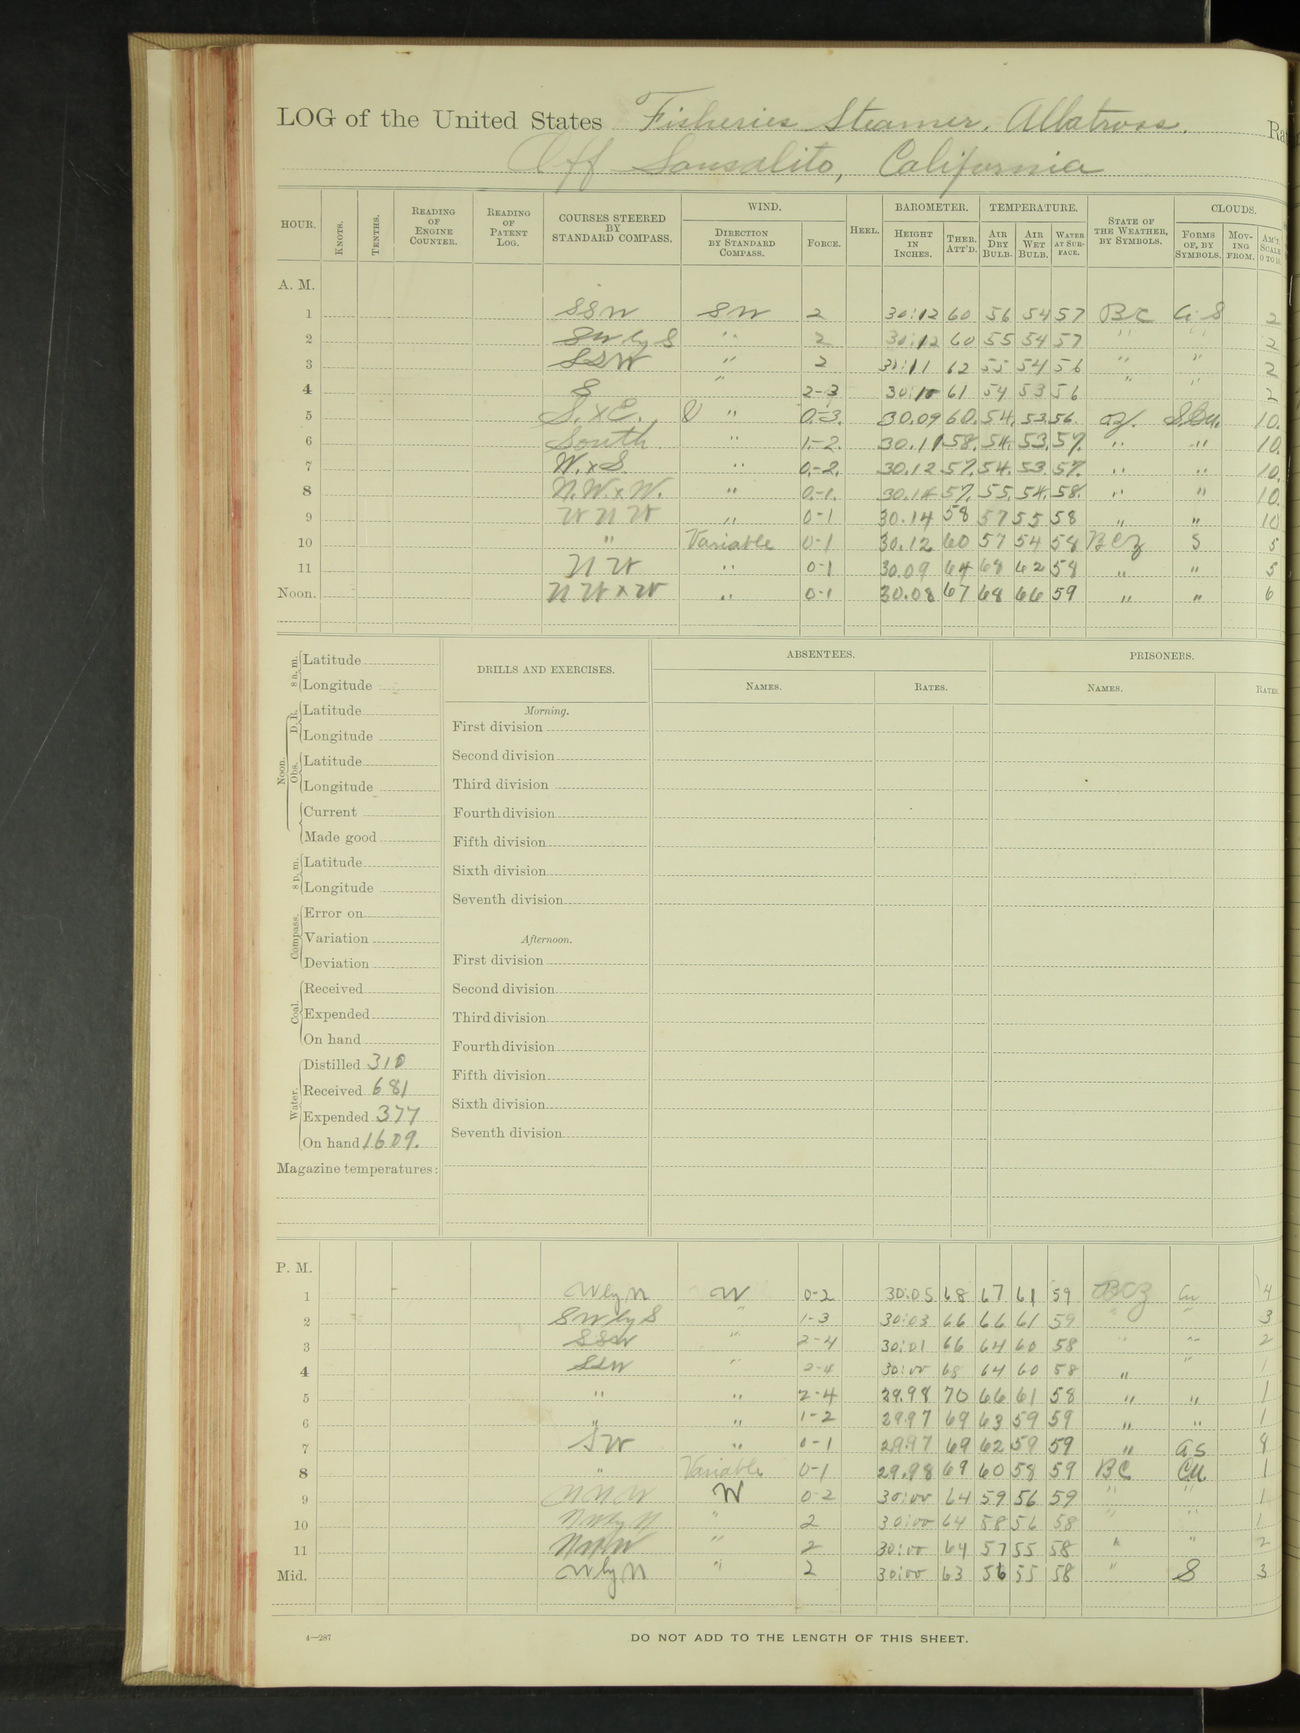 LOG of the United States Fisheries Steamer, Albatross. Ra
Off Sausalito, California
HOUR. KNOTS. TENTHS. READING OF ENGINE COUNTER. READING OF PATENT LOG. COURSES STEERED BY STANDARD COMPASS. WIND. DIRECTION BY STANDARD COMPASS. FORCE. HEEL. BAROMETER. HEIGHT IN INCHES. THER. ATT'D. TEMPERATURE. AIR DRY BULB. AIR WET BULB. WATER AT SURFACE. STATE OF THE WEATHER, BY SYMBOLS. CLOUDS. FORMS OF, BY SYMBOLS. MOVING FROM. AM'T. SCALE 0 TO 10.
A. M.
1 SSW SW 2 30:12 60 56 54 57 BC 2
2 SW by S " 2 30:12 60 55 54 57 " " 2
3 SSW " 2 30:11 62 55 54 56 " " 2
4 S " 2-3 30:10 61 54 53 56 " " 2
5 S. x E. " 0.-3. 30.09 60. 54. 53. 56. S.Cu. 10.
6 South " 1.-2. 30.11 58. 54. 53. 57. " " 10.
7 W. x S " 0.-2. 30.12 57. 54. 53. 57. " " 10.
8 N.W. x W. " 0.-1. 30.14 57. 55. 54. 58. " " 10.
9 W N W " 0-1 30.14 58 57 55 58 " " 10
10 " Variable 0-1 30.12 60 57 54 58 BCZ S 5
11 N W " 0-1 30.09 64 68 62 58 " " 5
Noon. N W x W " 0-1 30.08 67 68 66 59 " " 6
8 a. m. Latitude
Longitude
Noon. D. R. Latitude
Longitude
Obs. Latitude
Longitude
Current
Made good
8 p. m. Latitude
Longitude
Compass. Error on
Variation
Deviation
Coal. Received
Expended
On hand
Water. Distilled 310
Received 681
Expended 377
On hand 1609.
Magazine temperatures:
DRILLS AND EXERCISES.
Morning.
First division
Second division
Third division
Fourth division
Fifth division
Sixth division
Seventh division
Afternoon.
First division
Second division
Third division
Fourth division
Fifth division
Sixth division
Seventh division
ABSENTEES.
NAMES. RATES.
PRISONERS.
NAMES. RATES.
P. M.
1 W by N W 0-2 30:05 68 67 61 59 BCZ Cu 4
2 SW by S " 1-3 30:03 66 66 61 59 " " 3
3 SSW " 2-4 30:01 66 64 60 58 " " 2
4 SSW " 2-4 30:00 68 64 60 58 " " 1
5 " " 2-4 29.98 70 66 61 58 " " 1
6 " " 1-2 29.97 69 63 59 59 " " 1
7 SW " 0-1 29.97 69 62 59 59 " a s
8 " Variable 0-1 29.98 69 60 58 59 BC Cu 1
9 NNW W 0-2 30:00 64 59 56 59 " " 1
10 NW by N " 2 30:00 64 58 56 58 " " 1
11 NNW " 2 30:00 64 57 55 58 " " 2
Mid. W by N " 2 30:00 63 56 55 58 " S 3
4—287
DO NOT ADD TO THE LENGTH OF THIS SHEET.